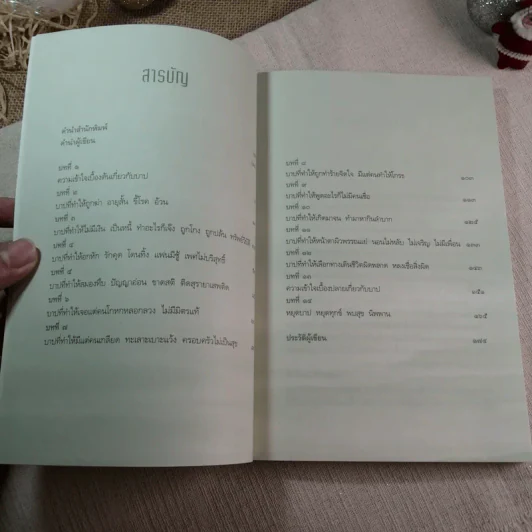 สารบัญ
คำนำสำนักพิมพ์
คำนำผู้เขียน
บทที่ ๑
ความเข้าใจเบื้องต้นเกี่ยวกับบาป
บทที่ ๒
บาปที่ทำให้ถูกฆ่า อายุสั้น ขี้โรค อ้วน
บทที่ ๓
บาปที่ทำให้ไม่มีเงิน เป็นหนี้ ทำอะไรก็เจ๊ง ถูกโกง ถูกปล้น
บทที่ ๔
บาปที่ทำให้อกหัก รักคุด โดนทิ้ง แฟนมีชู้ เพศไม่บริสุทธิ์
บทที่ ๕
บาปที่ทำให้สมองทึบ ปัญญาอ่อน ขาดสติ ติดสุรายาเสพติด
บทที่ ๖
บาปที่ทำให้เจอแต่คนโกหกหลอกลวง ไม่มีมิตรแท้
บทที่ ๗
บาปที่ทำให้มีแต่คนเกลียด ทะเลาะเบาะแว้ง ครอบครัวไม่เป็นสุข
บทที่ ๘
บาปที่ทำให้ถูกทำร้ายจิตใจ มีแต่คนทำให้โกรธ
บทที่ ๙
บาปที่ทำให้พูดอะไรก็ไม่มีคนเชื่อ
บทที่ ๑๐
บาปที่ทำให้เกิดมาจน ทำมาหากินลำบาก
บทที่ ๑๑
บาปที่ทำให้หน้าตาผิวพรรณแย่ นอนไม่หลับ ไม่เจริญ ไม่มีเพื่อน
บทที่ ๑๒
บาปที่ทำให้เลือกทางเดินชีวิตผิดพลาด หลงเชื่อสิ่งผิด
บทที่ ๑๓
ความเข้าใจเบื้องปลายเกี่ยวกับบาป
บทที่ ๑๔
หยุดบาป หยุดทุกข์ พบสุข นิพพาน
ประวัติผู้เขียน